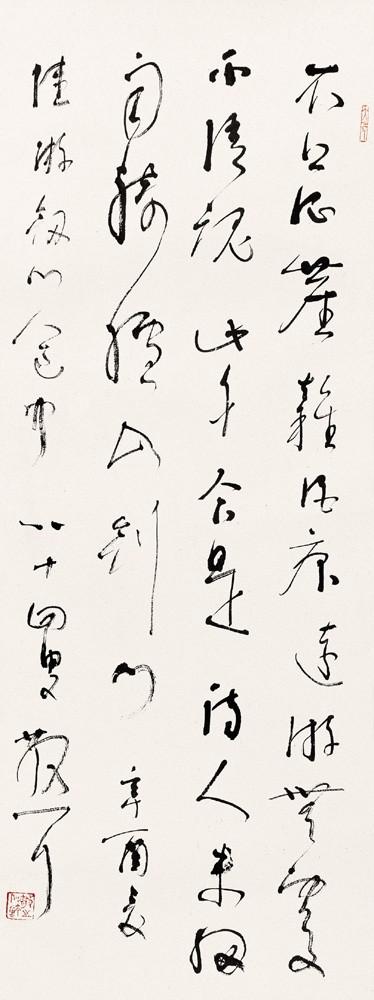 衣上征塵雜酒痕遠游無處
不消魂此身合是詩人未細
雨騎驢入劍門辛酉夏
陸游劍門道中八十四叟散耳